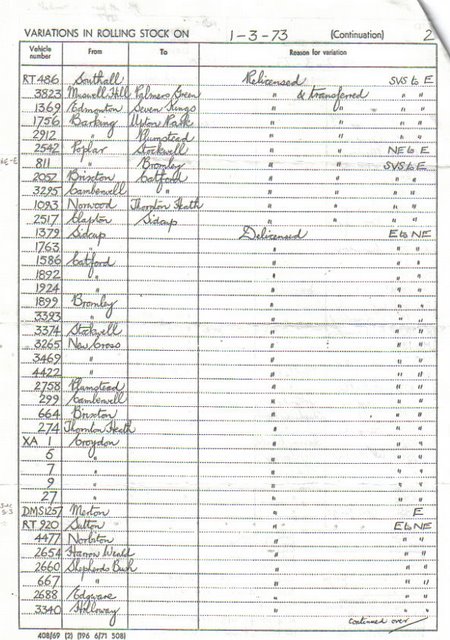 VARIATIONS IN ROLLING STOCK ON 1-3-73 (Continuation) 2
Vehicle number From To Reason for variation
RT 486 Southall Relicensed SVS to E
3823 Muswell Hill Palmers Green " & transferred " "
1369 Edmonton Seven Kings " " " "
1756 Barking Upton Park " " " "
2912 " Plumstead " " " "
2542 Poplar Stockwell " " NE to E
811 " Bromley " " SVS to E
2052 Brixton Catford " " " "
3295 Camberwell " " " " "
1093 Norwood Thornton Heath " " " "
2517 Clapton Sidcup " " " "
1379 Sidcup Delicensed E to NE
1763 " " " "
1586 Catford " " "
1892 " " " "
1924 " " " "
1899 Bromley " " "
3393 " " " "
3374 Stockwell " " "
3265 New Cross " " "
3469 " " " "
4422 " " " "
2758 Plumstead " " "
299 Camberwell " " "
664 Brixton " " "
274 Thornton Heath " " "
XA 1 Croydon " " "
6 " " " "
7 " " " "
9 " " " "
27 " " " "
DMS1257 Merton " E
RT 920 Sutton " E to NE
4477 Norbiton " " "
2654 Harrow Weald " " "
2660 Shepherds Bush " " "
667 " " " "
2688 Edgware " " "
3340 Holloway " " "
continued over
408/69 (2) (196 6/71 508)